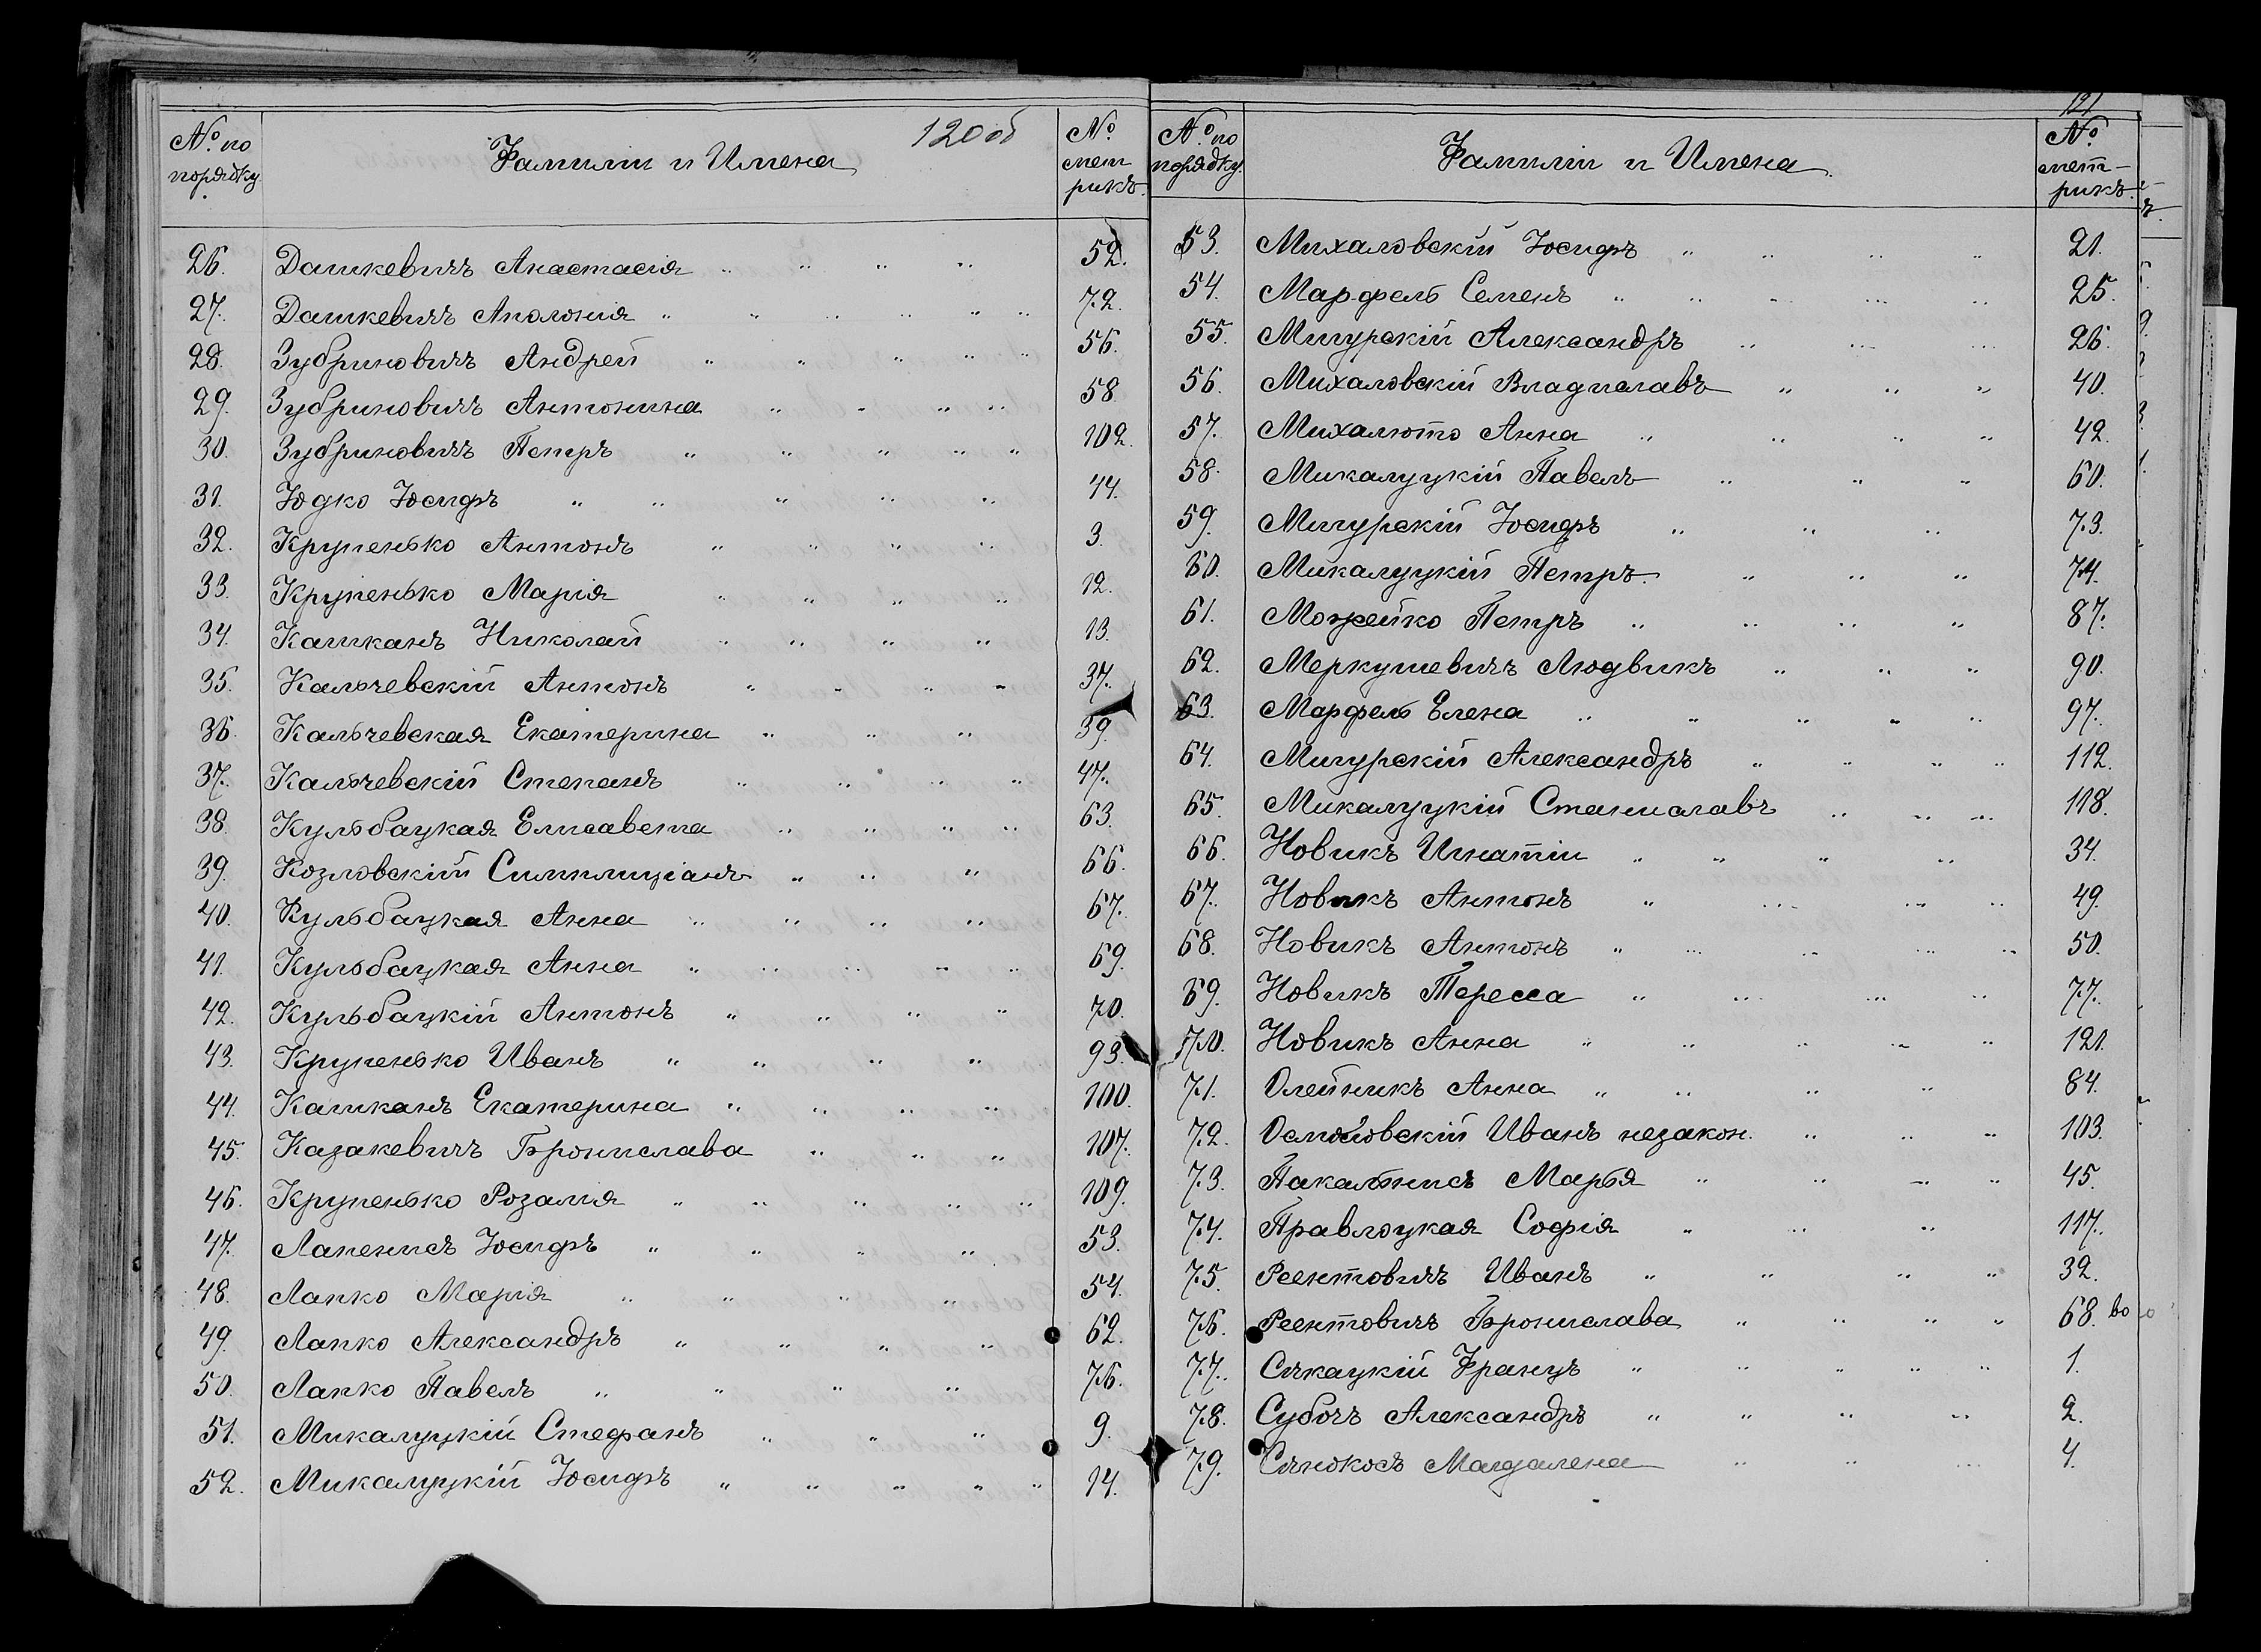 120 об
№ по порядку
Фамиліи и Имена
№ метрикъ.
26. Дашкевичъ Анастасія 52.
27. Дашкевичъ Аполонія 72.
28. Зубриновичъ Андрей 56.
29. Зубриновичъ Антонина 58.
30. Зубриновичъ Петръ 102.
31. Юдко Іосифъ 44.
32. Крупенько Антонъ 3.
33. Крупенько Марія 12.
34. Кашканъ Николай 13.
35. Кальчевскій Антонъ 37.
36. Кальчевская Екатерина 39.
37. Кальчевскій Степанъ 47.
38. Кульбацкая Елисавета 63.
39. Козловскій 66.
40. Кульбацкая Анна 67.
41. Кульбацкая Анна 69.
42. Кульбацкій Антонъ 70.
43. Крупенько Иванъ 93.
44. Кашканъ Екатерина 100.
45. Казакевичъ Брониславa 107.
46. Крупенько Розалія 109.
47. Лапенисъ Іосифъ 53.
48. Лапко Марія 54.
49. Лапко Александръ 62.
50. Лапко Павелъ 76.
51. Микалуцкій Стефанъ 9.
52. Микалуцкій Іосифъ 14.
121
№ по порядку.
Фамиліи и Имена.
№ метрикъ.
53. Михаловскій Іосифъ 21.
54. Марфель Семенъ 25.
55. Мигурскій Александръ 26.
56. Михаловскій Владиславъ 40.
57. Михалюто Анна 42.
58. Микалуцкій Павелъ 60.
59. Мигурскій Іосифъ 73.
60. Микалуцкій Петръ 74.
61. Можейко Петръ 87.
62. Меркушевичъ Людвикъ 90.
63. Марфель Елена 97.
64. Мигурскій Александръ 112.
65. Микалуцкій Станиславъ 118.
66. Новикъ Игнатій 34.
67. Новикъ Антонъ 49.
68. Новикъ Антонъ 50.
69. Новикъ Тересса 77.
70. Новикъ Анна 121.
71. Олейникъ Анна 84.
72. Осмоловскій Иванъ незакон. 103.
73. Пакальнисъ Марья 45.
74. Правлоцкая Софія 117.
75. Реентовичъ Иванъ 32.
76. Реентовичъ Бронислава 68. во
77. Сѣкацкій Францъ 1.
78. Субочъ Александръ 2.
79. Сѣнокосъ Магдалена 4.